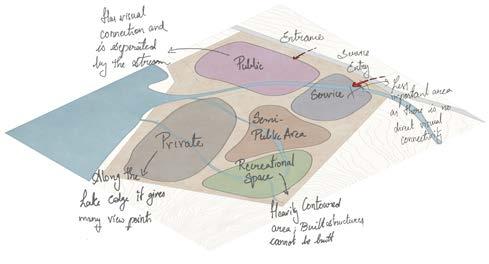 Has visual
connection and
is seperated
by the stream
Entrance
Service
Entry
Public
Service
Less
important area
as there is no
direct visual
connectivity
Semi-
Public Area
Private
Recreational
Space
Along the
Lake edge it gives
many view point
Heavily Contoured
area, Built structures
cannot be built